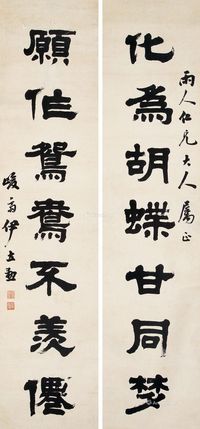 化為胡蝶甘同梦
雨人仁兄大人属正
願作鴛鴦不羨僊
峻斋伊立勳